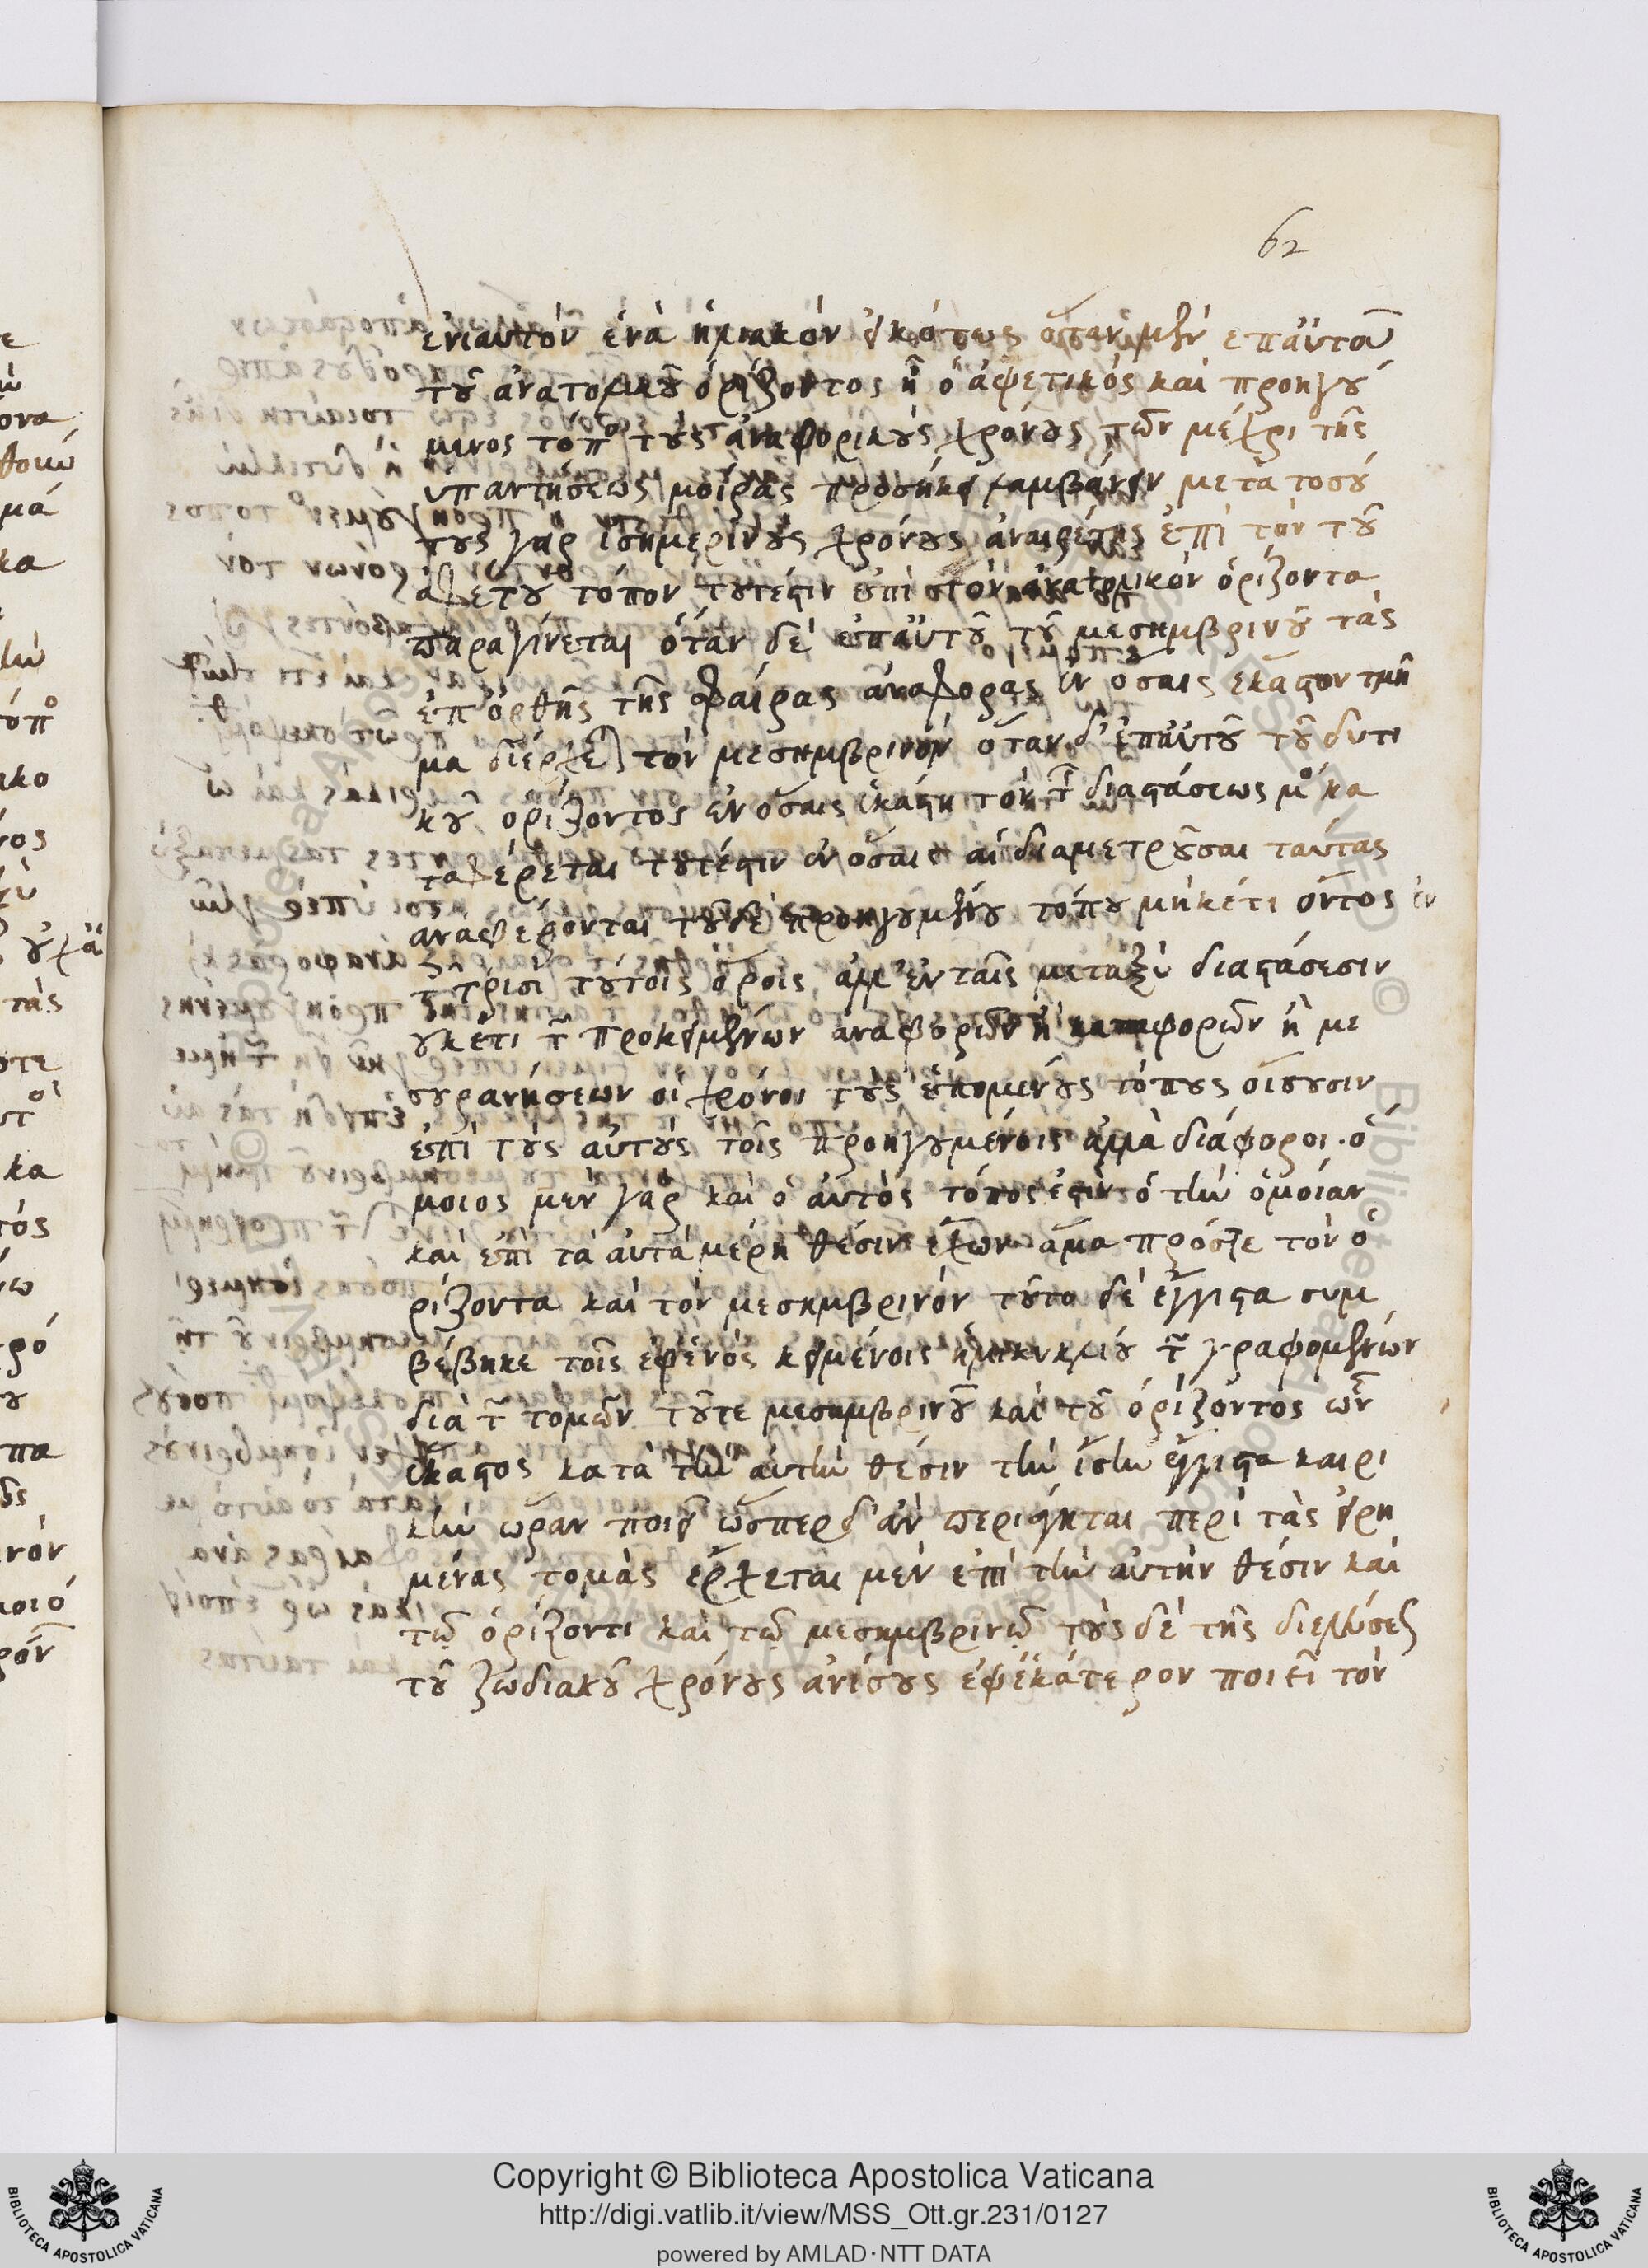 62
ἐνιαυτὸν ἕνα ἡλιακὸν εἰκότως ὅταν μὲν ἐπ' αὐτοῦ
τοῦ ἀνατολικοῦ ὁρίζοντος ἦ ὁ ἀφετικός καὶ προηγού
μενος τόπο τοὺς ἀναφορικοὺς χρόνους τῶν μέχρι τῆς
ὑπαντήσεως μοίρας προσήκει λαμβάνειν μετὰ τοσού
τους γὰρ ἰσημερινοὺς χρόνους ὁ ἀναιρέτης ἐπὶ τὸν τοῦ
ἀφέτου τόπον τουτέστιν ἐπὶ τὸν ἀνατολικὸν ὁρίζοντα
παραγίνεται ὅταν δὲ ἐπ' αὐτοῦ τοῦ μεσημβρινοῦ τὰς
ἐπ' ὀρθῆς τῆς σφαίρας ἀναφορὰς ἐν ὅσαις ἕκαστον τμῆ
μα διέρχεται τὸν μεσημβρινὸν ὅταν δ' ἐπ' αὐτοῦ τοῦ δυτι
κοῦ ὁρίζοντος ἐν ὅσαις ἑκάστη τῶν τ διαστάσεως μο κα
ταφέρεται τουτέστιν ἐν ὅσαις αἱ διαμετροῦσαι ταύτας
ἀναφέρονται τοῦ δὲ προηγουμένου τόπου μηκέτι ὄντος ἐν
τρισὶ τούτοις ὅροις ἀλλ' ἐν ταῖς μεταξὺ διαστάσεσιν
οὐκέτι τ προκειμένων ἀναφορῶν ἢ καταφορῶν ἢ με
σουρανήσεων οἱ χρόνοι τοὺς ἑπομένους τόπους οἴσουσιν
ἐπὶ τοὺς αὐτοὺς τοῖς προηγουμένοις ἀλλὰ διάφοροι· ὅ
μοιος μὲν γὰρ καὶ ὁ αὐτὸς τόπος ἐστὶν ὁ τὴν ὁμοίαν
καὶ ἐπὶ τὰ αὐτὰ μέρη θέσιν ἔχων ἅμα πρός τε τὸν ὁ
ρίζοντα καὶ τὸν μεσημβρινόν τοῦτο δὲ ἔγγιστα συμ
βέβηκε τοῖς ἐφ' ἑνὸς κειμένοις ἡμικυκλίου τ γραφομένων
διὰ τ τομῶν τοῦ τε μεσημβρινοῦ καὶ τοῦ ὁρίζοντος ὧν
ἕκαστος κατὰ τὴν αὐτὴν θέσιν τὴν ἴσην ἔγγιστα καιρι
κὴν ὥραν ποιεῖ ὥσπερ δ' ἂν περιάγηται περὶ τὰς εἰρη
μένας τομὰς ἔρχεται μὲν ἐπὶ τὴν αὐτὴν θέσιν καὶ
τῷ ὁρίζοντι καὶ τῷ μεσημβρινῷ τοὺς δὲ τῆς διελεύσεως
τοῦ ζωδιακοῦ χρόνους ἀνίσους ἐφ' ἑκάτερον ποιεῖ τὸν
Copyright © Biblioteca Apostolica Vaticana
http://digi.vatlib.it/view/MSS_Ott.gr.231/0127
powered by AMLAD·NTT DATA
BIBLIOTECA APOSTOLICA VATICANA
BIBLIOTECA APOSTOLICA VATICANA